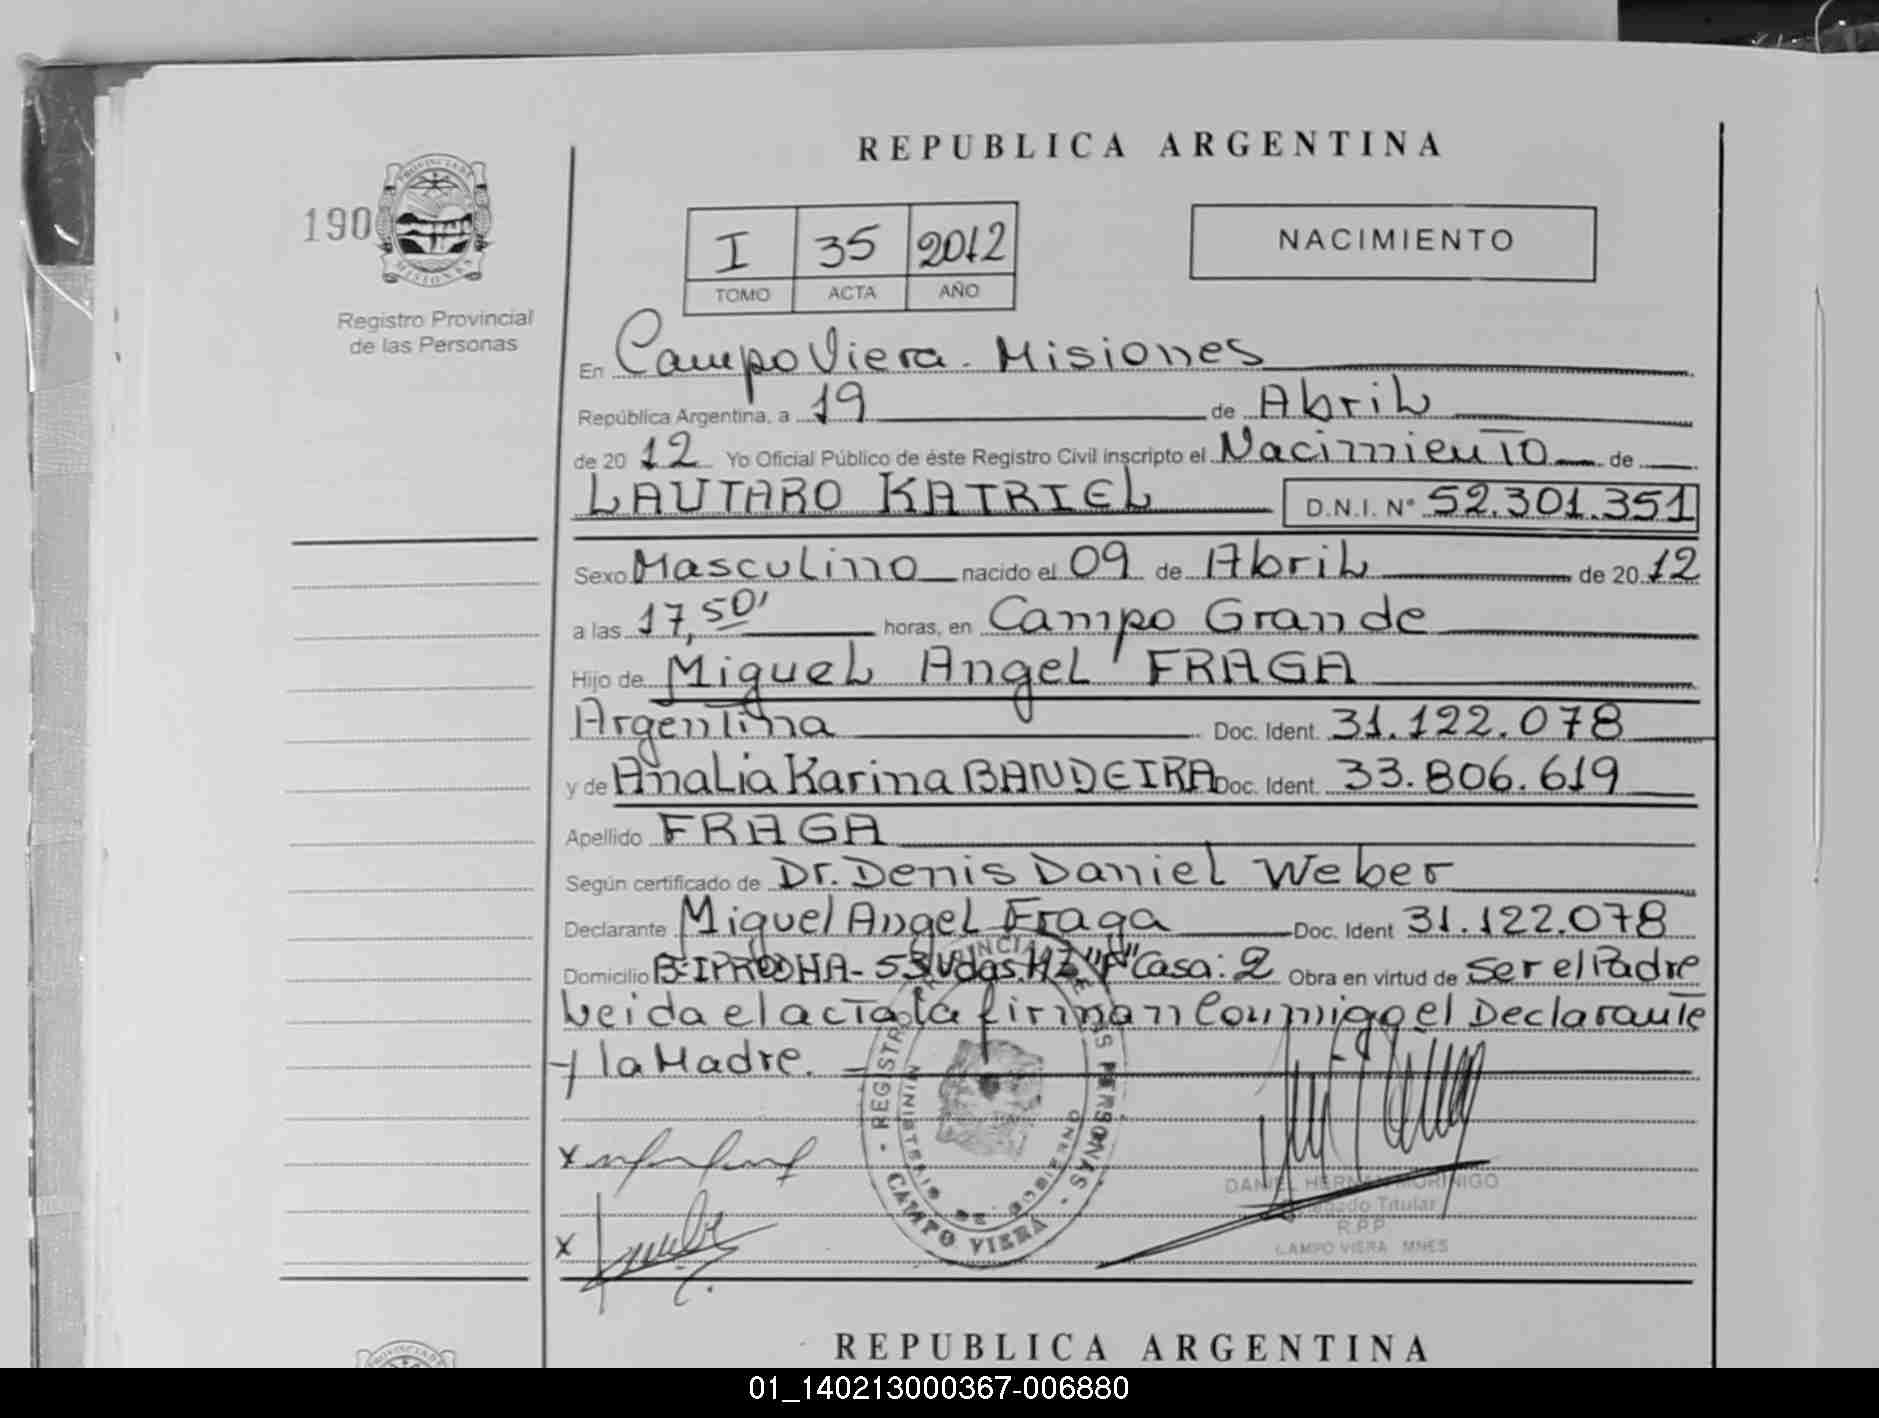 REPUBLICA ARGENTINA
190
PROVINCIA DE MISIONES
Registro Provincial
de las Personas
I 35 2012
TOMO ACTA AÑO
NACIMIENTO
En Campo Viera - Misiones
República Argentina, a 19 de Abril
de 2012 Yo Oficial Público de éste Registro Civil inscripto el Nacimiento de
LAUTARO KATRIEL D.N.I. N° 52.301.351
Sexo Masculino nacido el 09 de Abril de 2012
a las 17,50' horas, en Campo Grande
Hijo de Miguel Angel FRAGA
Argentina Doc. Ident. 31.122.078
y de Analia Karina BANDEIRA Doc. Ident. 33.806.619
Apellido FRAGA
Según certificado de Dr. Denis Daniel Weber
Declarante Miguel Angel Fraga Doc. Ident 31.122.078
Domicilio B: IPRODHA - 53 Vdas. MZ "F" Casa: 2 Obra en virtud de ser el Padre
Leida el acta la firman Conmigo el Declarante
y la Madre.
REGISTRO PROVINCIAL DE LAS PERSONAS
MINISTERIO DE GOBIERNO
CAMPO VIERA
X
X
DANIEL HERNAN MORINIGO
Titular
R.P.P.
CAMPO VIERA MNES
REPUBLICA ARGENTINA
01_140213000367-006880